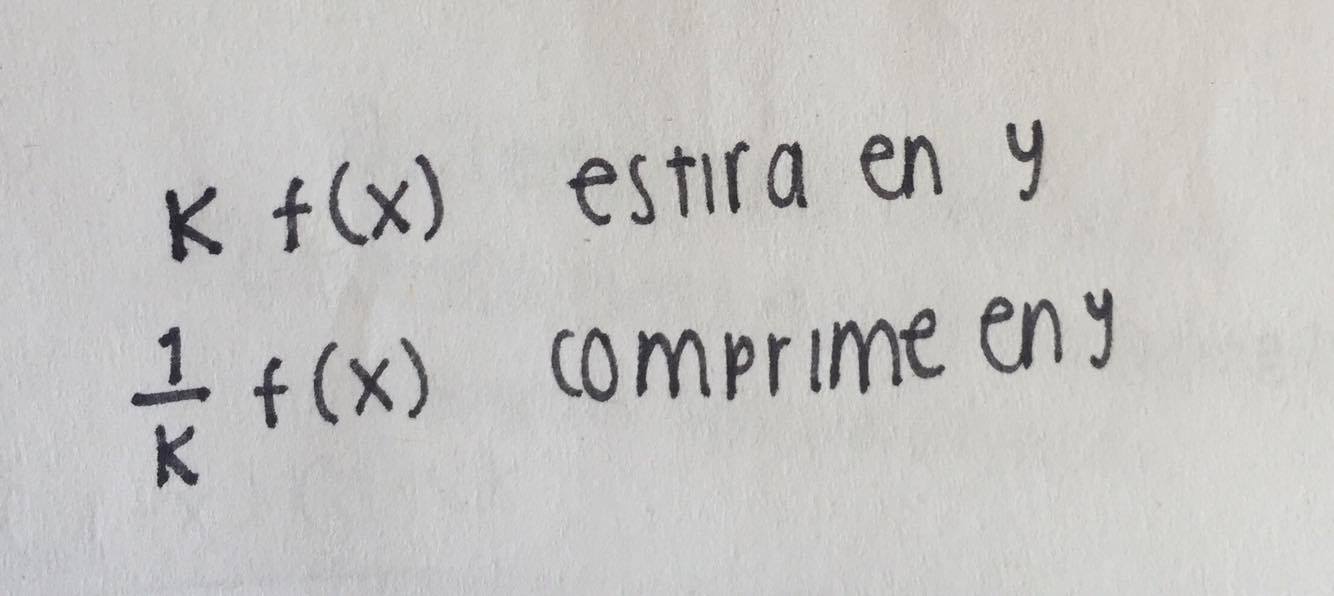 K f(x) estira en y
1/K f(x) comprime en y